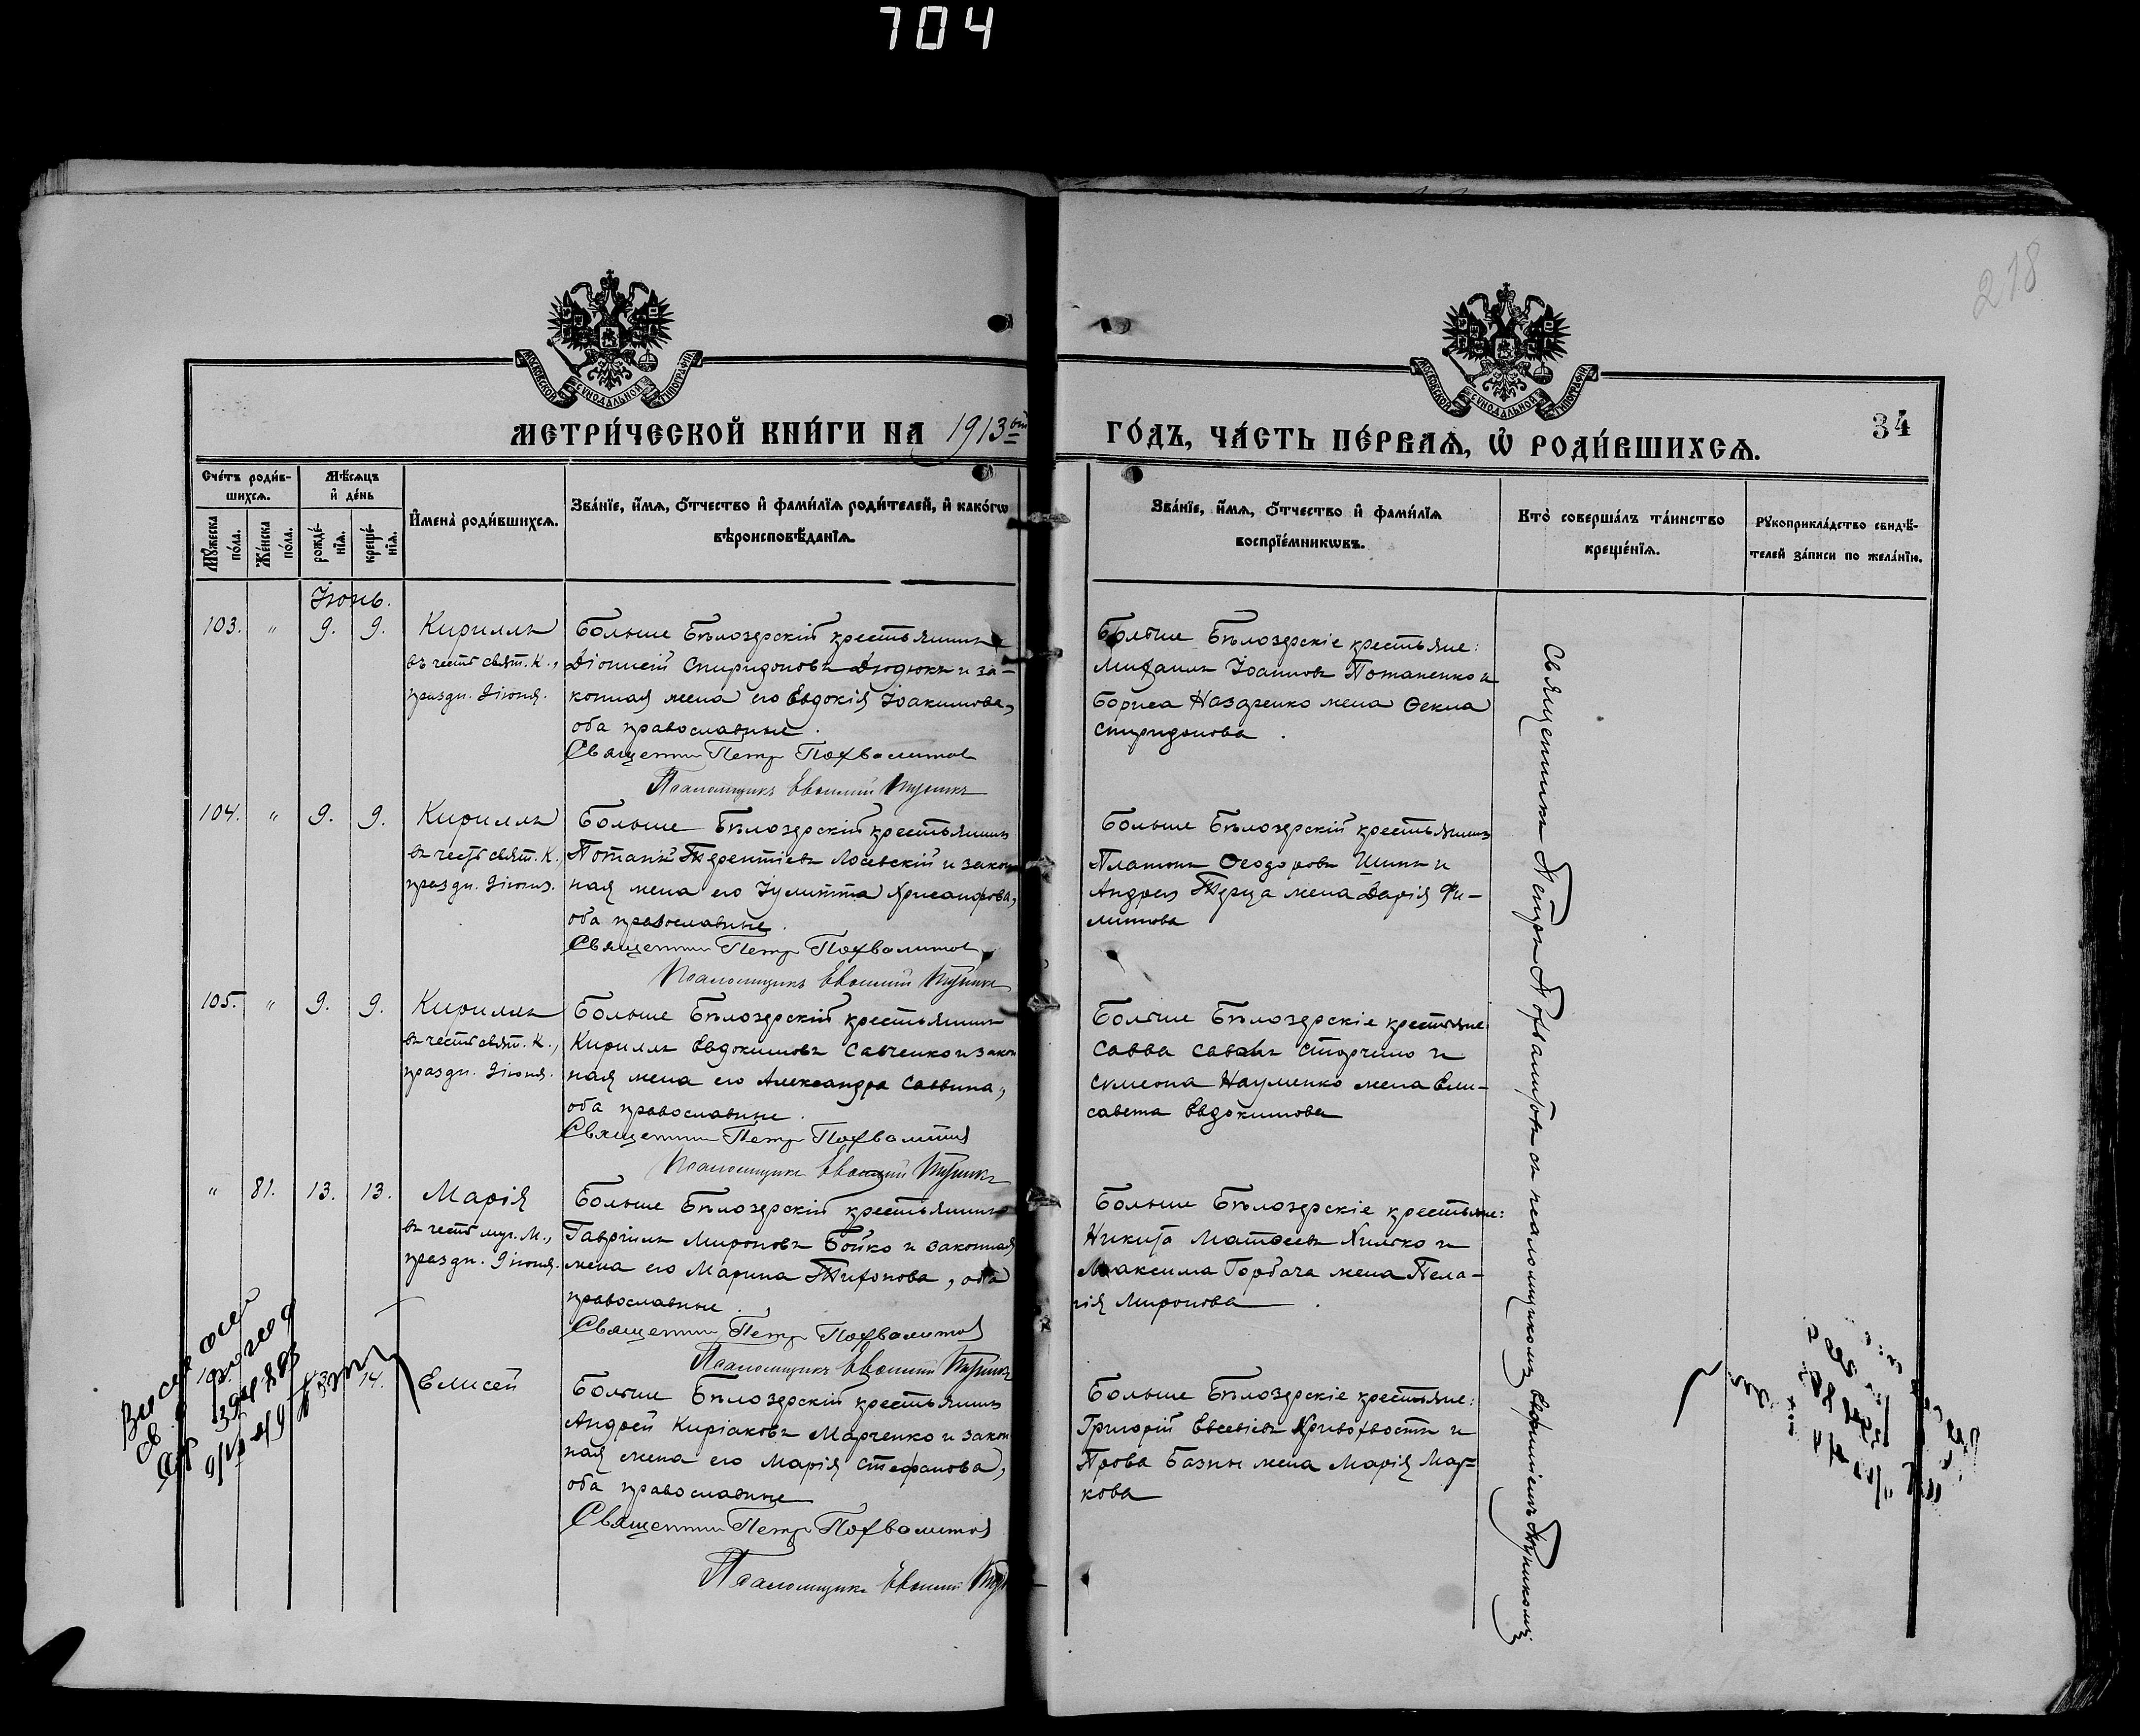 704
218
МОСКОВСКОЙ СѴНОДАЛЬНОЙ ТИПОГРАФІИ
МОСКОВСКОЙ СѴНОДАЛЬНОЙ ТИПОГРАФІИ
МЕТРИ́ЧЕСКОЙ КНИ́ГИ НА 1913
ГО́ДЪ, ЧА́СТЬ ПЕ́РВАЯ, Ѡ҆ РОДИ́ВШИХСѦ.
34
Сче́тъ роди́в-
шихсѧ.
Мѣ́сѧцъ
и҆ де́нь
Мꙋ́жеска
по́ла.
Же́нска
по́ла.
рожде́-
нїѧ.
креще́-
нїѧ.
И҆мена̀ роди́вшихсѧ.
Зва́нїе, и҆́мѧ, ѻ҆́тчество и҆ фами́лїѧ роди́телей, и҆ како́гѡ
вѣроисповѣ́данїѧ.
Зва́нїе, и҆́мѧ, ѻ҆́тчество и҆ фами́лїѧ
воспрїе́мникѡвъ.
Кто̀ соверша́лъ та́инство
креще́нїѧ.
Рꙋкоприкла́дство свидѣ́-
телей за́писи по жела́нїю.
Іюнь.
103. " 9. 9. Кириллъ
въ честь свят. К.,
праздн. 9 іюня.
Больше Бѣлозерскій крестьянинъ
Діонисій Спиридоновъ Дзюдюкъ и за-
конная жена его Евдокія Іоакимова,
оба православные.
Священник Петръ Похвалитов
Псаломщикъ Евфимій
Больше Бѣлозерскіе крестьяне:
Михаилъ Іоанновъ Потапенко и
Бориса Назаренко жена Ѳекла
Спиридонова.
104. " 9. 9. Кириллъ
въ честь свят. К.,
праздн. 9 іюня.
Больше Бѣлозерскій крестьянинъ
Потапій Терентіевъ Лосевскій и закон
ная жена его Іулитта Хрисанфова,
оба православные.
Священник Петръ Похвалитов
Псаломщикъ Евфимій
Больше Бѣлозерскій крестьянинъ
Платонъ Ѳеодоровъ Шинъ и
Андрея Терца жена Дарія Фи-
липпова
105. " 9. 9. Кириллъ
въ честь свят. К.,
праздн. 9 іюня.
Больше Бѣлозерскій крестьянинъ
Кириллъ Евдокимовъ Савченко и закон
ная жена его Александра Саввина,
оба православные.
Священник Петръ Похвалитов
Псаломщикъ Евфимій
Больше Бѣлозерскіе крестьяне:
Савва Саввинъ Сторчило и
Симеона Науменко жена Ели-
савета Евдокимова
" 81. 13. 13. Марія
въ честь муч. М.,
праздн. 9 іюня.
Больше Бѣлозерскій крестьянинъ
Гавріилъ Мироновъ Бойко и законная
жена его Марина Тихонова, оба
православные.
Священник Петръ Похвалитов
Псаломщикъ Евфимій
Больше Бѣлозерскіе крестьяне:
Никита Матѳеевъ Хилько и
Максима Горбача жена Пела-
гія Миронова
14. Елисей
Больше Бѣлозерскій крестьянинъ
Андрей Киріаковъ Марченко и закон
ная жена его Марія Стефанова,
оба православные
Священник Петръ Похвалитов
Псаломщикъ Евфимій
Больше Бѣлозерскіе крестьяне:
Григорій Евсевіевъ Кривохвостъ и
Прова Базны жена Марія Мар-
кова
Священникъ Петръ Похвалитовъ съ псаломщикомъ Евфиміемъ